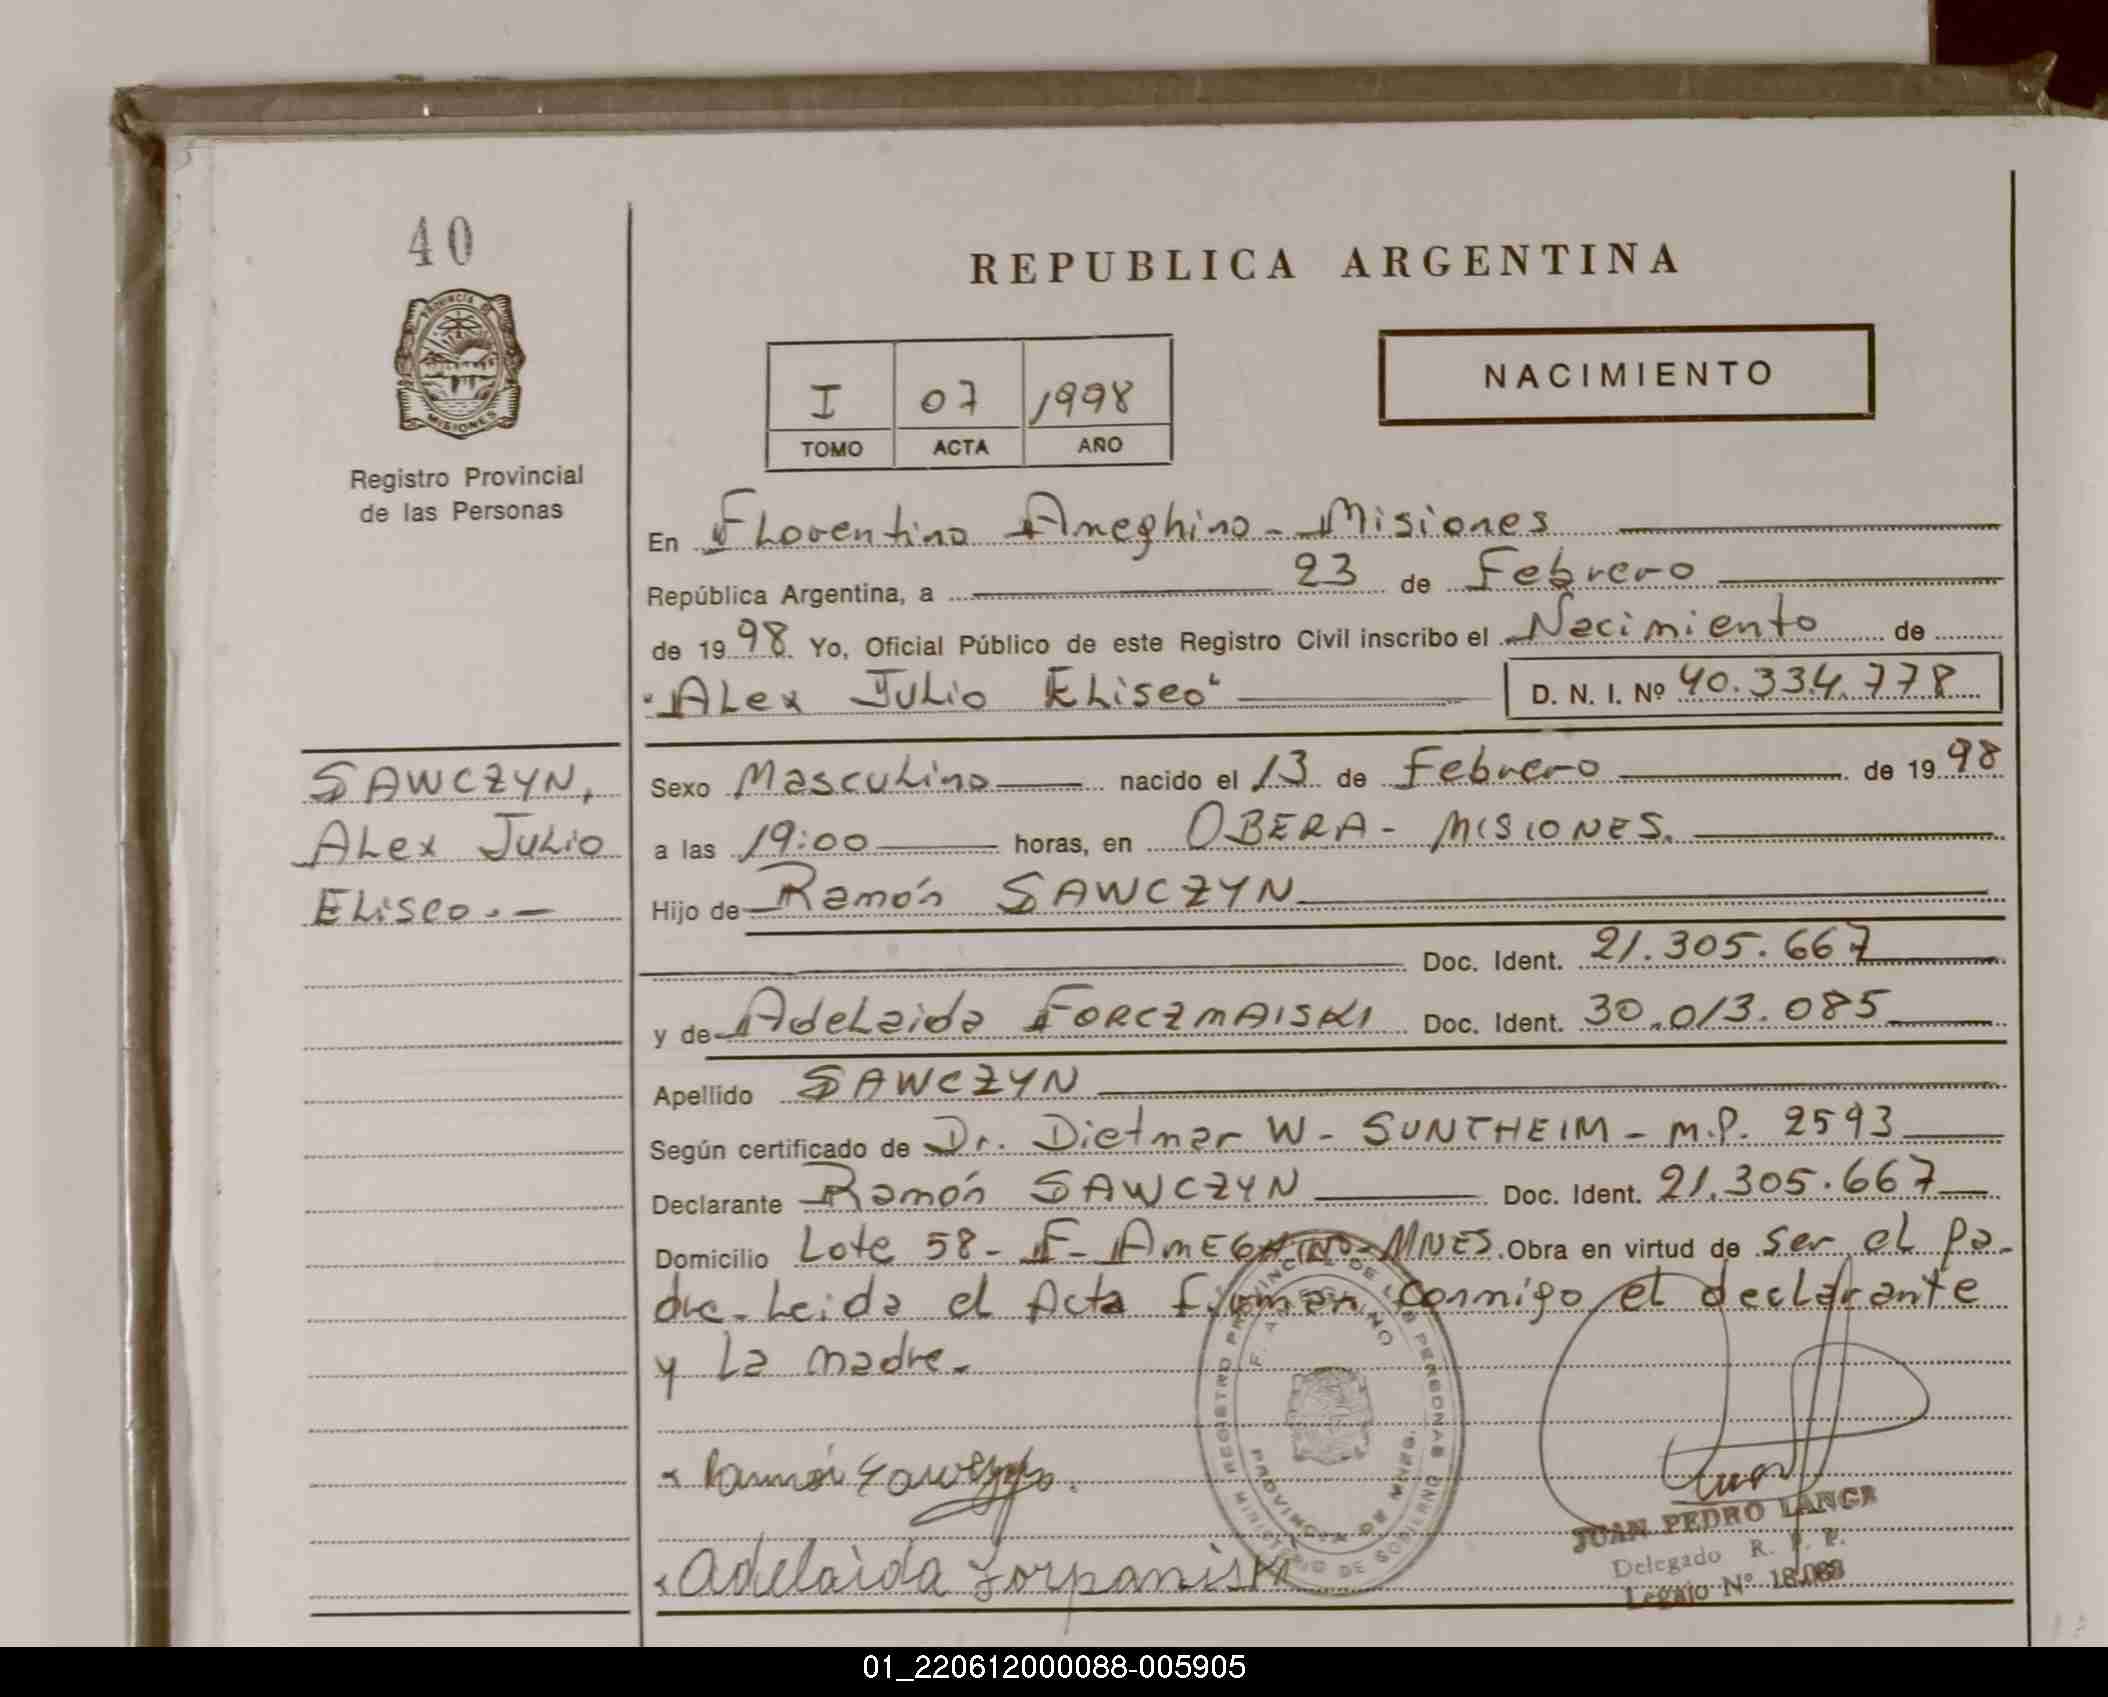 40
REPUBLICA ARGENTINA
PROVINCIA DE
MISIONES
NACIMIENTO
I 07 1998
TOMO ACTA AÑO
Registro Provincial
de las Personas
En Florentino Ameghino - Misiones
República Argentina, a 23 de Febrero
de 1998 Yo, Oficial Público de este Registro Civil inscribo el Nacimiento de
"Alex Julio Eliseo" D. N. I. Nº 40.334.778
SAWCZYN,
Alex Julio
Eliseo.-
Sexo Masculino nacido el 13 de Febrero de 1998
a las 19:00 horas, en OBERA - MISIONES.
Hijo de Ramón SAWCZYN
Doc. Ident. 21.305.667
y de Adelaida FORCZMAISKI Doc. Ident. 30.013.085
Apellido SAWCZYN
Según certificado de Dr. Dietmar W - SUNTHEIM - M.P. 2593
Declarante Ramón SAWCZYN Doc. Ident. 21.305.667
Domicilio Lote 58 - F - AMEGHINO - MNES. Obra en virtud de ser el pa-
dre. Leida el Acta Firman conmigo el declarante
y La madre.
REGISTRO PROVINCIAL DE LAS PERSONAS
F. AMEGHINO
PROVINCIA DE MNES.
MINISTERIO DE GOBIERNO
Ramón
Adelaida
JUAN PEDRO LANGE
Delegado R. P. P.
Legajo Nº
01_220612000088-005905